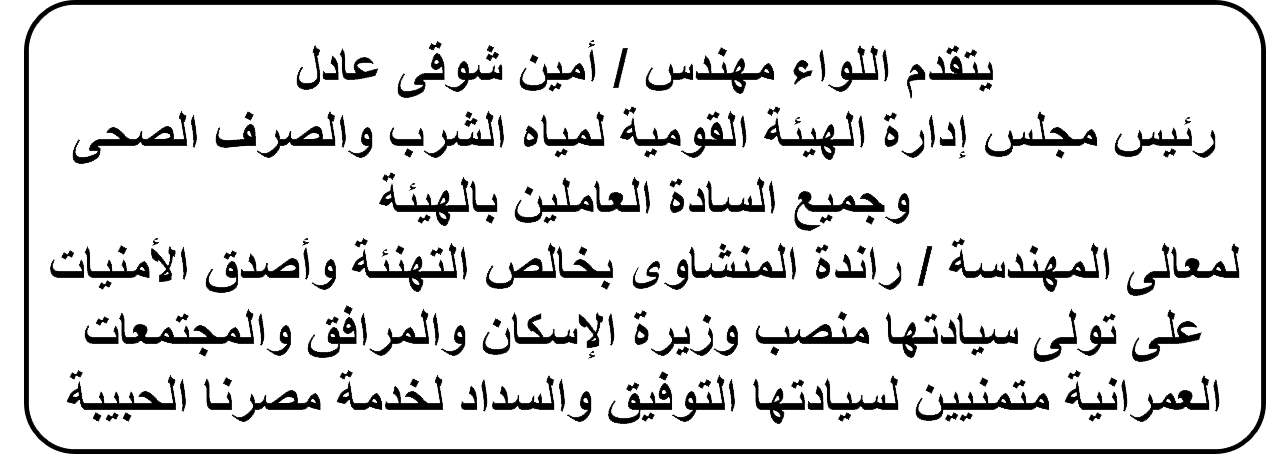 يتقدم اللواء مهندس / أمين شوقى عادل
رئيس مجلس إدارة الهيئة القومية لمياه الشرب والصرف الصحى
وجميع السادة العاملين بالهيئة
لمعالى المهندسة / راندة المنشاوى بخالص التهنئة وأصدق الأمنيات
على تولى سيادتها منصب وزيرة الإسكان والمرافق والمجتمعات
العمرانية متمنيين لسيادتها التوفيق والسداد لخدمة مصرنا الحبيبة